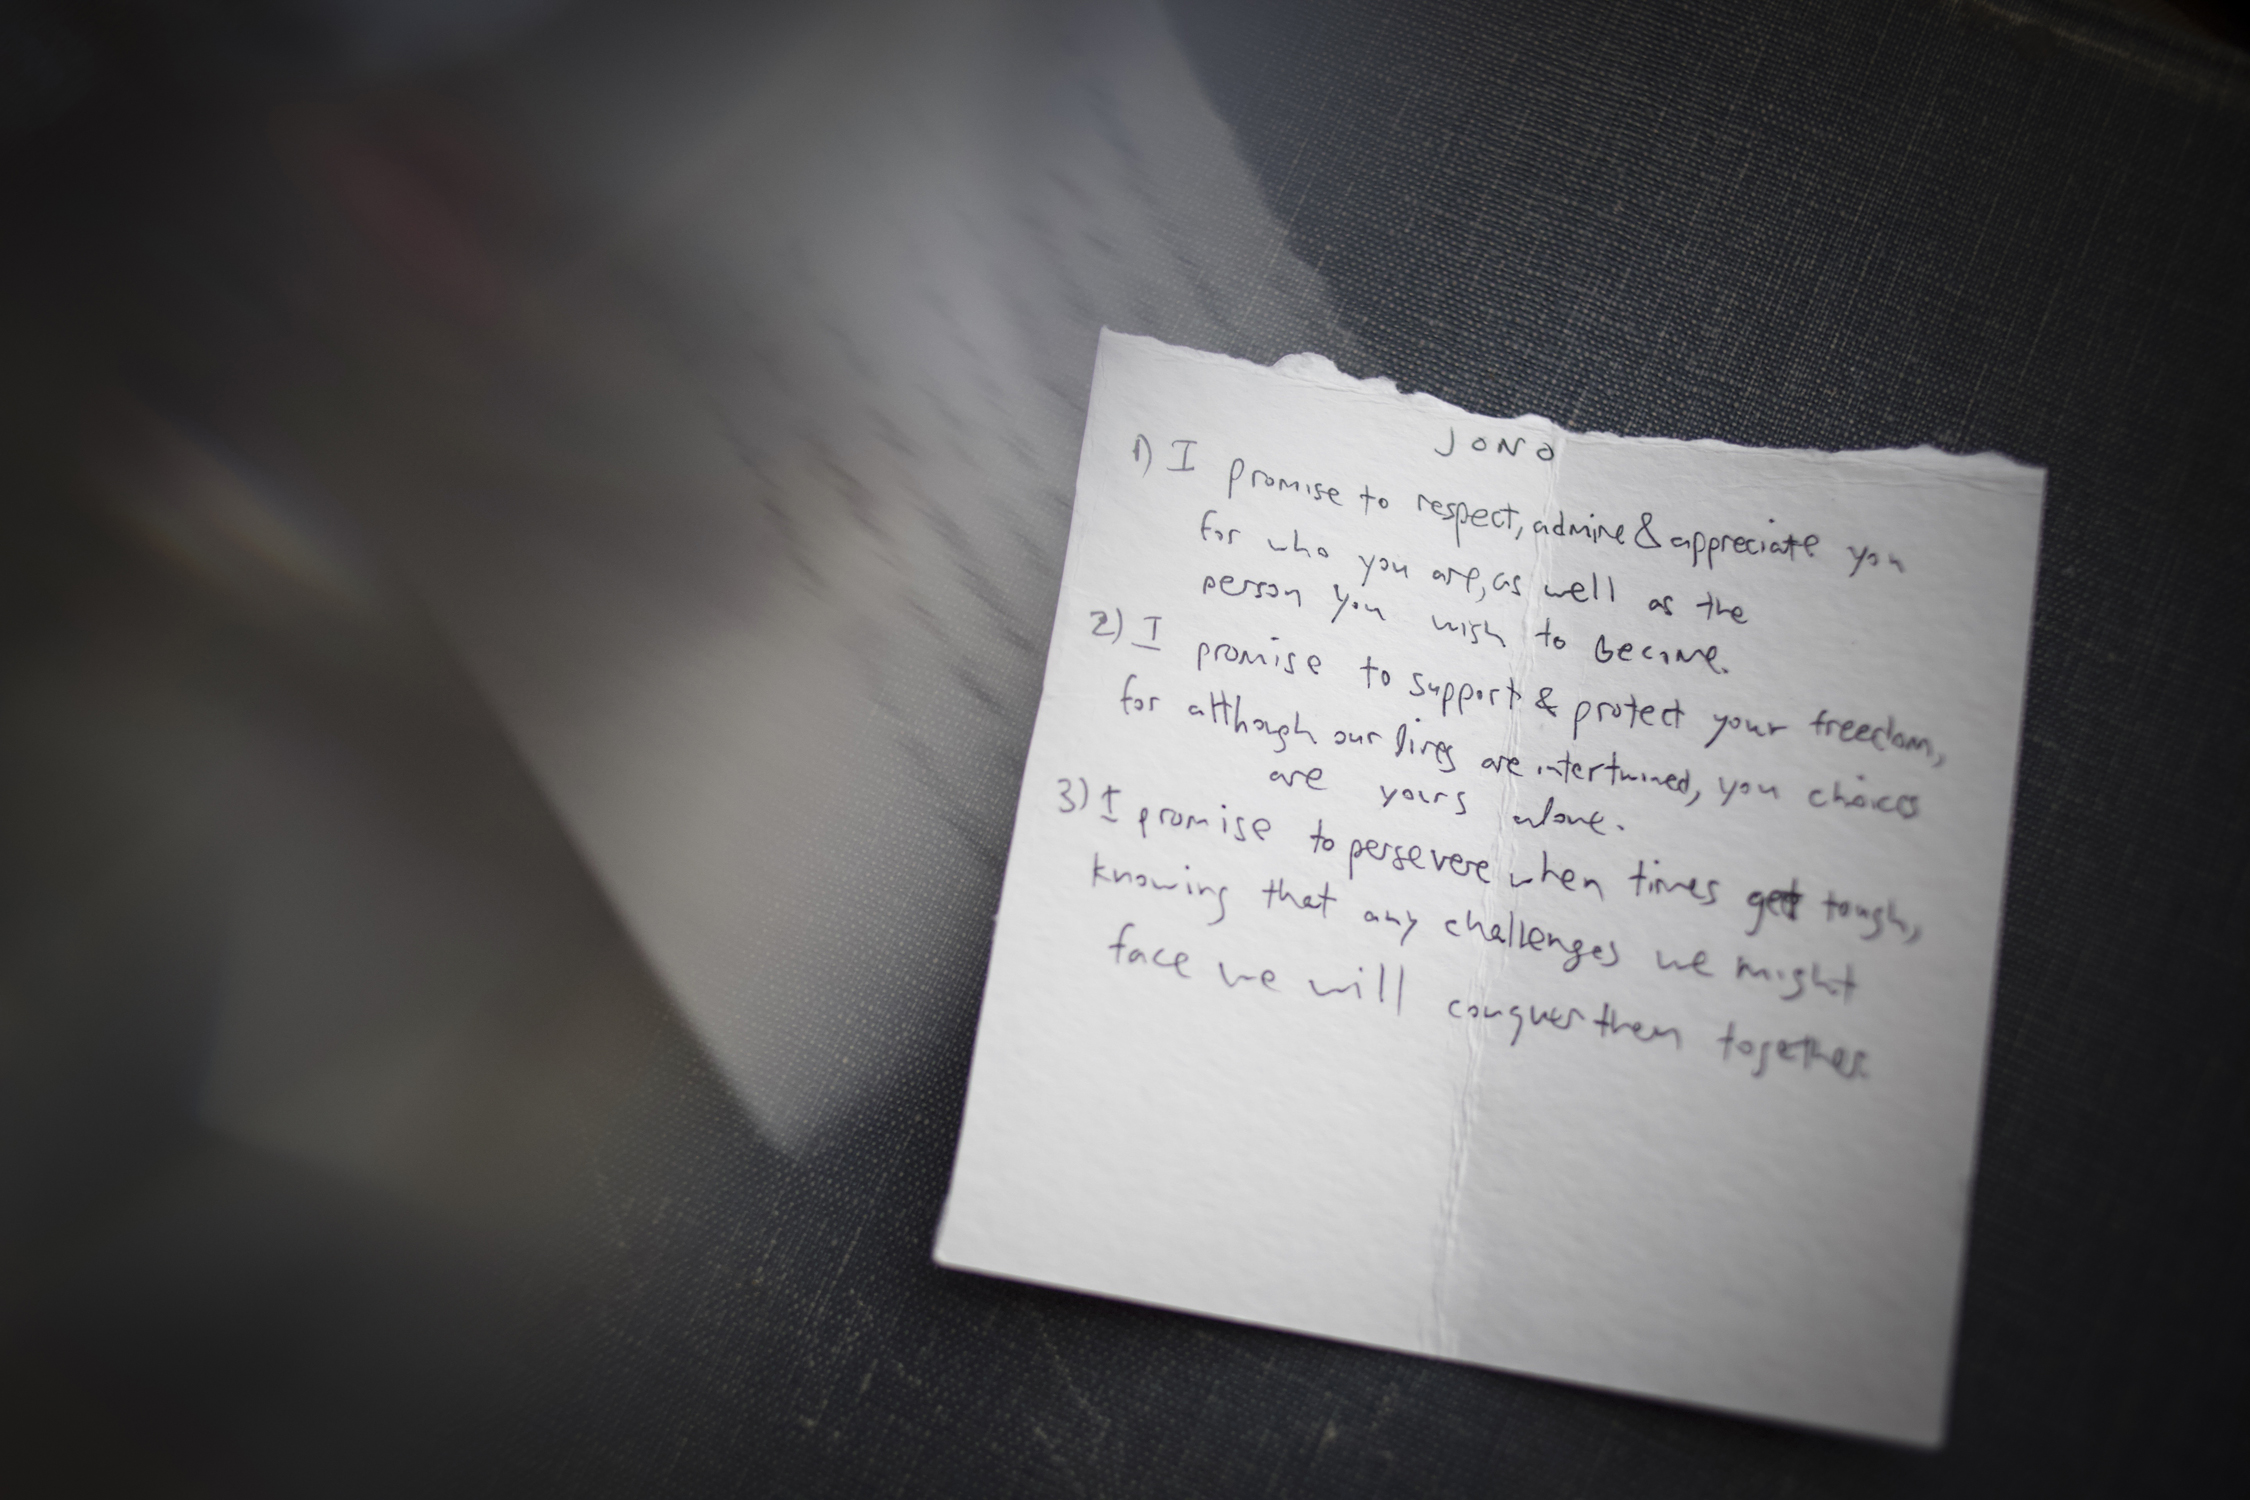 JONO
1) I promise to respect, admire & appreciate you
for who you are, as well as the
person you wish to become.
2) I promise to support & protect your freedom,
for although our lives are intertwined, you choices
are yours alone.
3) I promise to persevere when times get tough,
knowing that any challenges we might
face we will conquer them together.